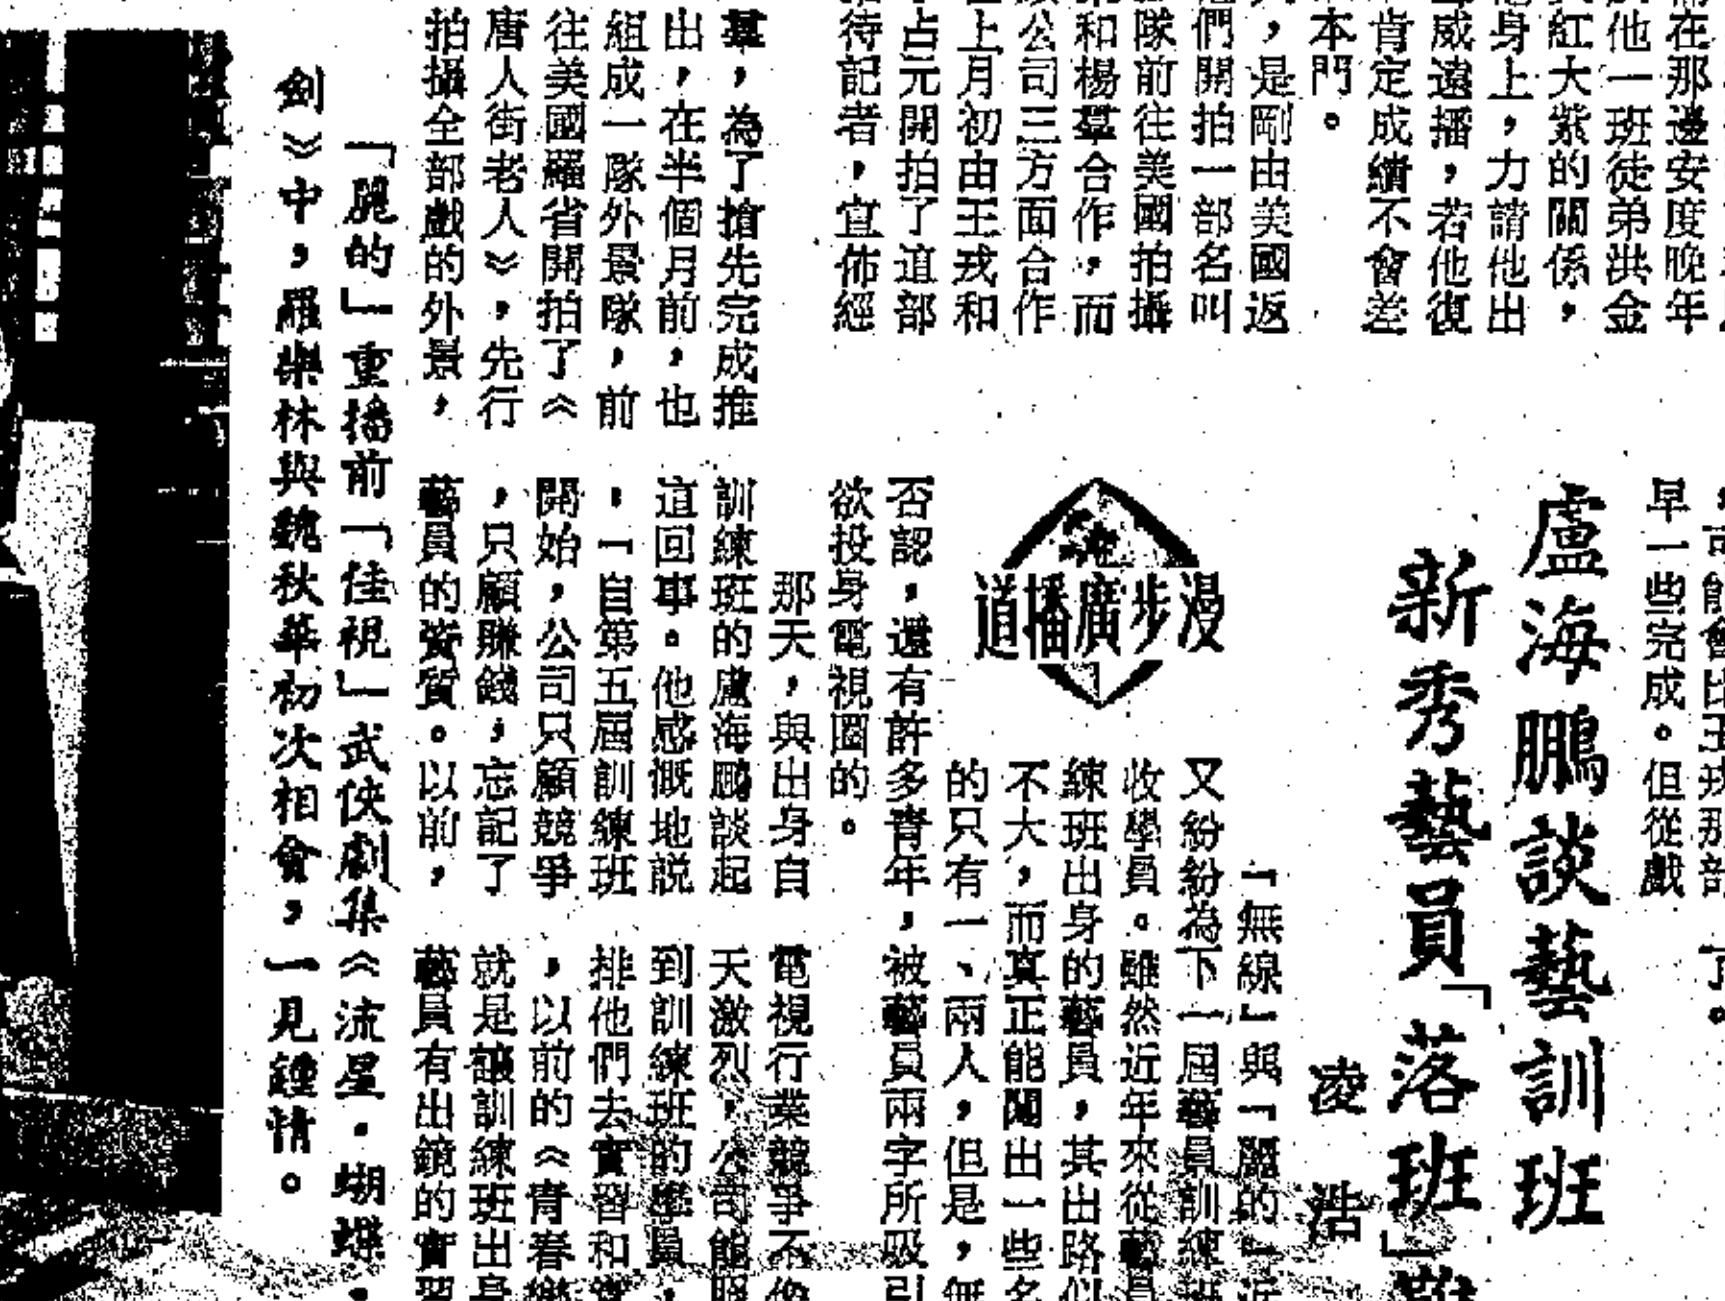 在那邊安度晚年
他一班徒弟洪金
紅大紫的關係，
身上，力請他出
威遠播，若他復
肯定成績不會差
本門。
，是剛由美國返
們開拍一部名叫
隊前往美國拍攝
和楊羣合作，而
公司三方面合作
上月初由王戎和
占元開拍了這部
待記者，宣佈經
羣，為了搶先完成推
出，在半個月前，也
組成一隊外景隊，前
往美國羅省開拍了《
唐人街老人》，先行
拍攝全部戲的外景，
可能會比王戎那部
早一些完成。但從戲
了。
盧海鵬談藝訓班
新秀藝員「落班」難
凌浩
漫步廣播道
「無線」與「麗的」近
又紛紛為下一屆藝員訓練班
收學員。雖然近年來從藝員
練班出身的藝員，其出路似
不大，而真正能闖出一些名
的只有一、兩人，但是，無
否認，還有許多青年，被藝員兩字所吸引
欲投身電視圈的。
那天，與出身自
訓練班的盧海鵬談起
這回事。他感慨地説
，「自第五屆訓練班
開始，公司只顧競爭
，只顧賺錢，忘記了
藝員的資質。以前，
電視行業競爭不像
天激烈，公司能照
到訓練班的學員，
排他們去實習和
，以前的《青春樂
就是讓訓練班出身
藝員有出鏡的實習
「麗的」重播前「佳視」武俠劇集《流星．蝴蝶．
劍》中，羅樂林與魏秋華初次相會，一見鍾情。